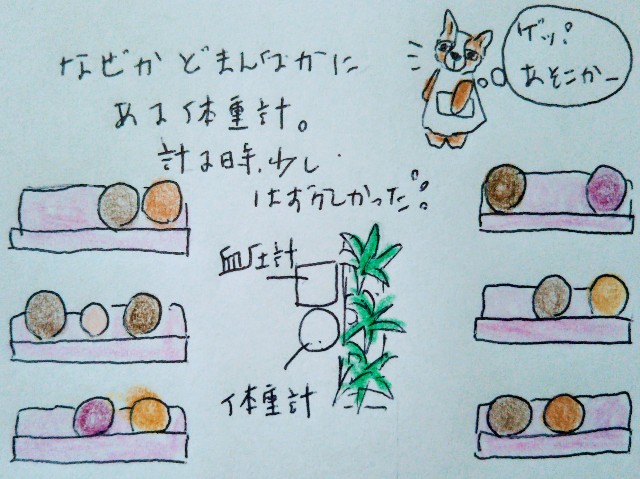 なぜか どまんなかに
ある体重計。
計る時、少し
はずかしかった!!
ゲッ!
あそこかー
血圧計
体重計